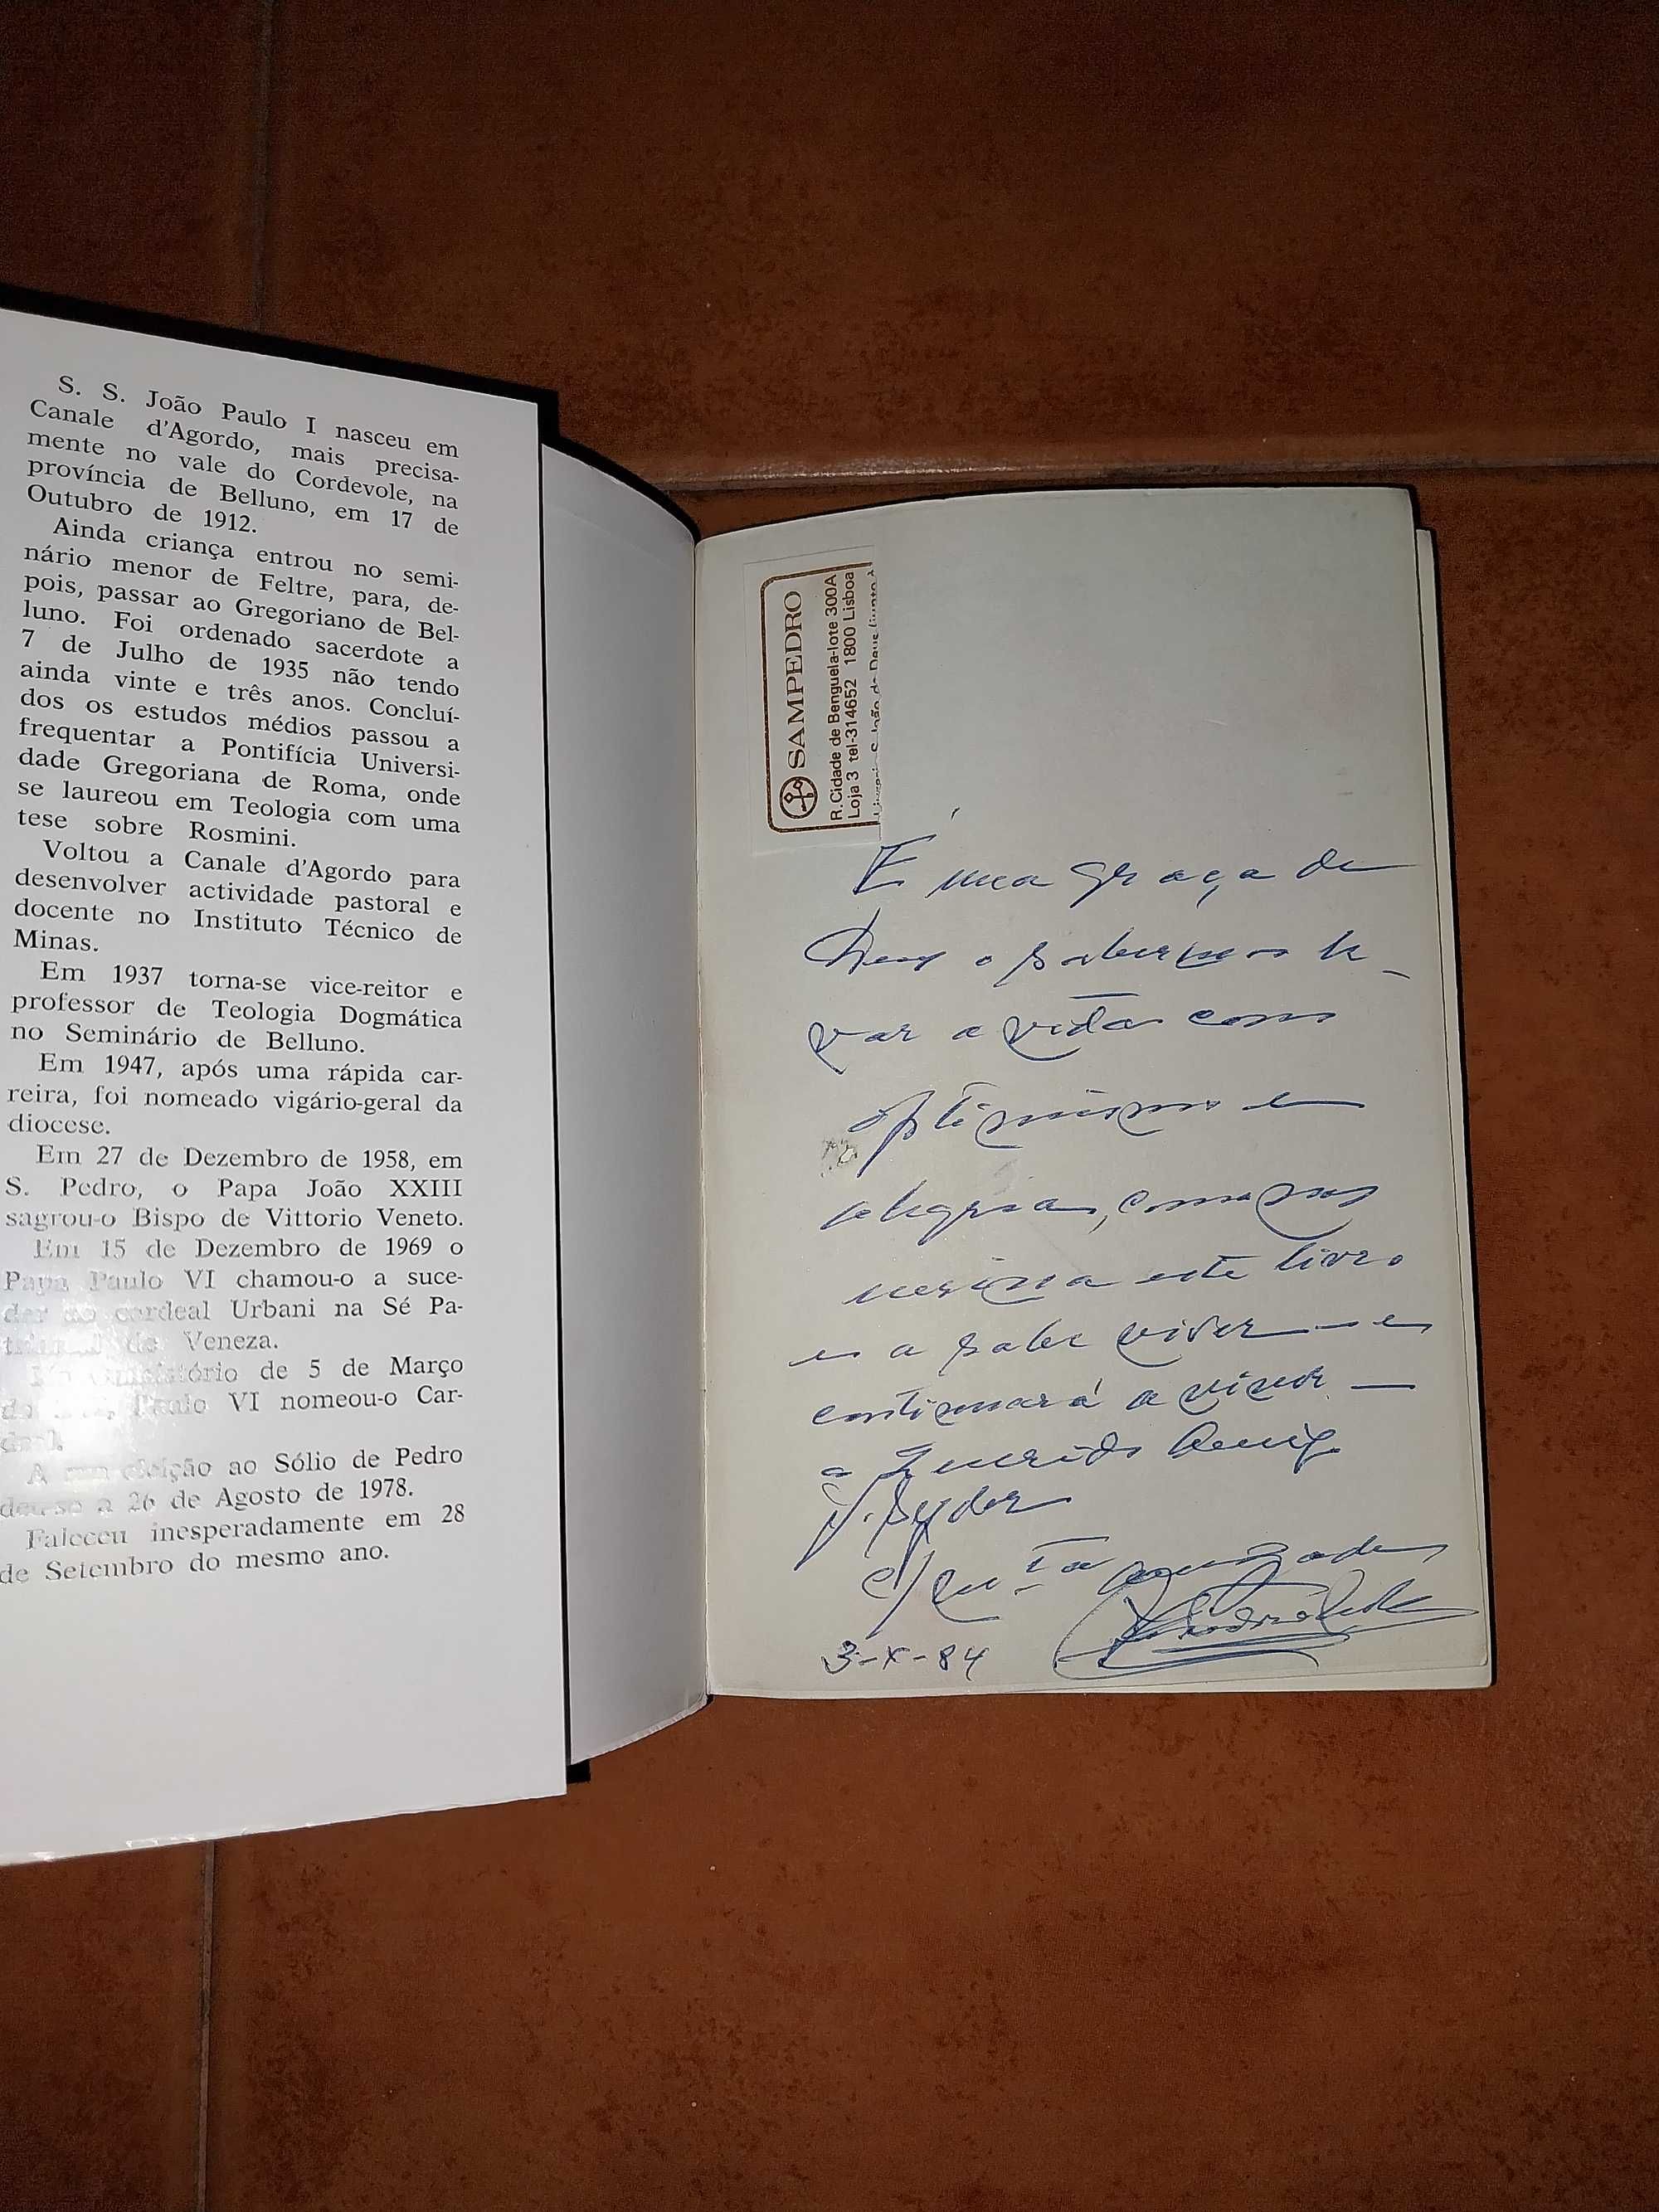 S. S. João Paulo I nasceu em
Canale d'Agordo, mais precisa-
mente no vale do Cordevole, na
província de Belluno, em 17 de
Outubro de 1912.
Ainda criança entrou no semi-
nário menor de Feltre, para, de-
pois, passar ao Gregoriano de Bel-
luno. Foi ordenado sacerdote a
7 de Julho de 1935 não tendo
ainda vinte e três anos. Concluí-
dos os estudos médios passou a
frequentar a Pontifícia Universi-
dade Gregoriana de Roma, onde
se laureou em Teologia com uma
tese sobre Rosmini.
Voltou a Canale d'Agordo para
desenvolver actividade pastoral e
docente no Instituto Técnico de
Minas.
Em 1937 torna-se vice-reitor e
professor de Teologia Dogmática
no Seminário de Belluno.
Em 1947, após uma rápida car-
reira, foi nomeado vigário-geral da
diocese.
Em 27 de Dezembro de 1958, em
S. Pedro, o Papa João XXIII
sagrou-o Bispo de Vittorio Veneto.
Em 15 de Dezembro de 1969 o
Papa Paulo VI chamou-o a suce-
der ao cardeal Urbani na Sé Pa-
de Veneza.
de 5 de Março
Paulo VI nomeou-o Car-
deal.
A sua eleição ao Sólio de Pedro
deu-se a 26 de Agosto de 1978.
Faleceu inesperadamente em 28
de Setembro do mesmo ano.
SAMPEDRO
R. Cidade de Benguela-lote 300A
Loja 3 tel-314652 1800 Lisboa
É uma graça de
Deus o sabermos le-
var a vida com
optimismo e
alegria, como nos
ensina este livro
e a sabe viver e
continuará a viver —
o Querido Amigo
c/ muita amizade
3-X-84